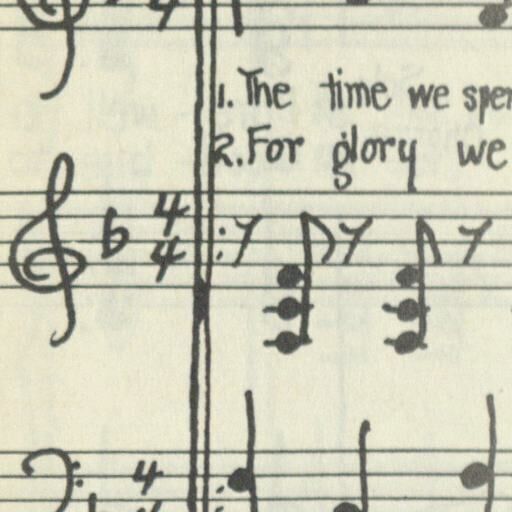 4
1. The time we
2. For glory we
4
4
4